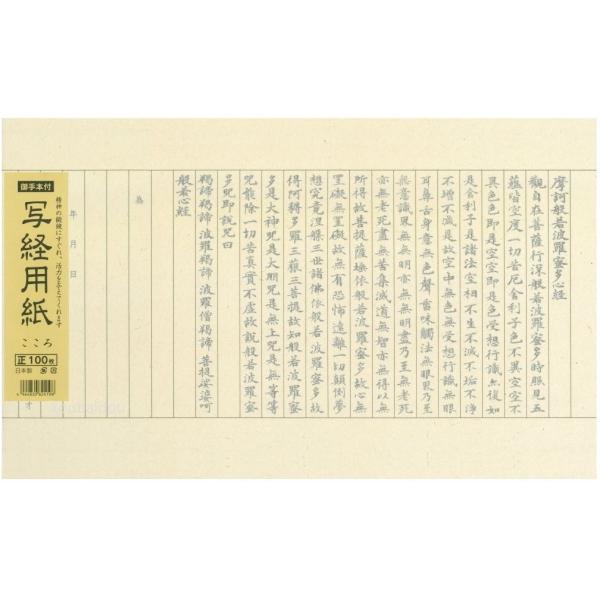 摩訶般若波羅蜜多心経
観自在菩薩行深般若波羅蜜多時照見五
蘊皆空度一切苦厄舎利子色不異空空不
異色色即是空空即是色受想行識亦復如
是舎利子是諸法空相不生不滅不垢不浄
不増不減是故空中無色無受想行識無眼
耳鼻舌身意無色聲香味觸法無眼界乃至
無意識界無無明亦無無明盡乃至無老死
亦無老死盡無苦集滅道無智亦無得以無
所得故菩提薩埵依般若波羅蜜多故心無
罣礙無罣礙故無有恐怖遠離一切顛倒夢
想究竟涅槃三世諸佛依般若波羅蜜多故
得阿耨多羅三藐三菩提故知般若波羅蜜
多是大神咒是大明咒是無上咒是無等等
咒能除一切苦真實不虚故説般若波羅蜜
多咒即説咒曰
羯諦羯諦 波羅羯諦 波羅僧羯諦 菩提娑婆訶
般若心経
為
年 月 日
御手本付
写経用紙
精神の鍛錬にすぐれ、活力を与えてくれます
こころ
正100枚
日本製